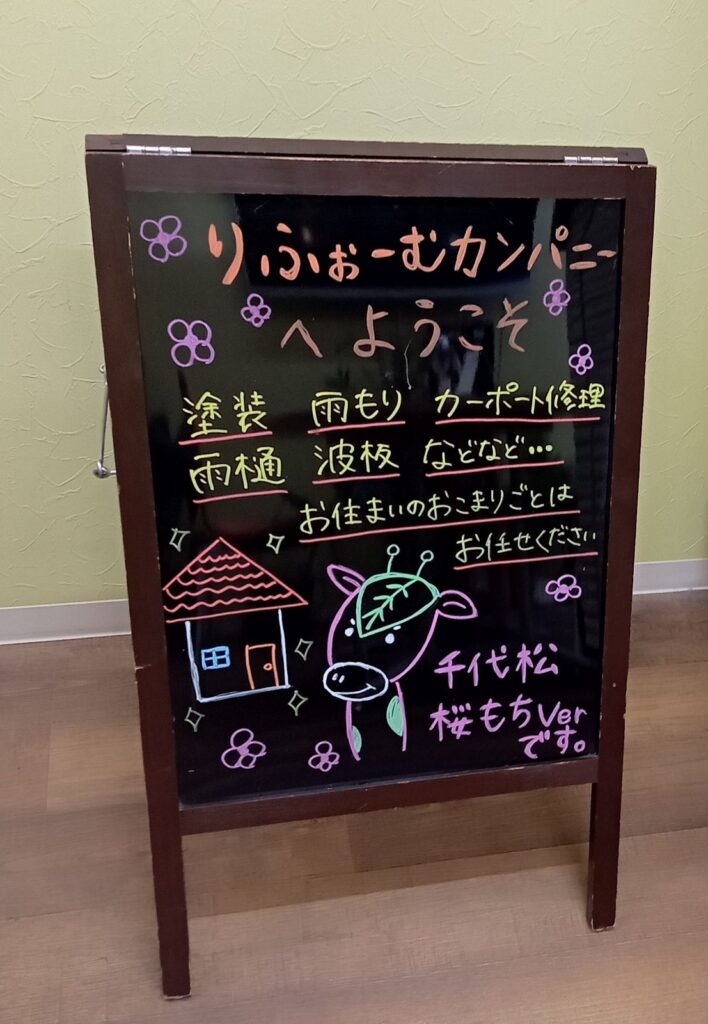 りふぉーむカンパニー
へようこそ
塗装 雨もり カーポート修理
雨樋 波板 などなど…
お住まいのおこまりごとは
お任せください
千代松
桜もちVer
です。